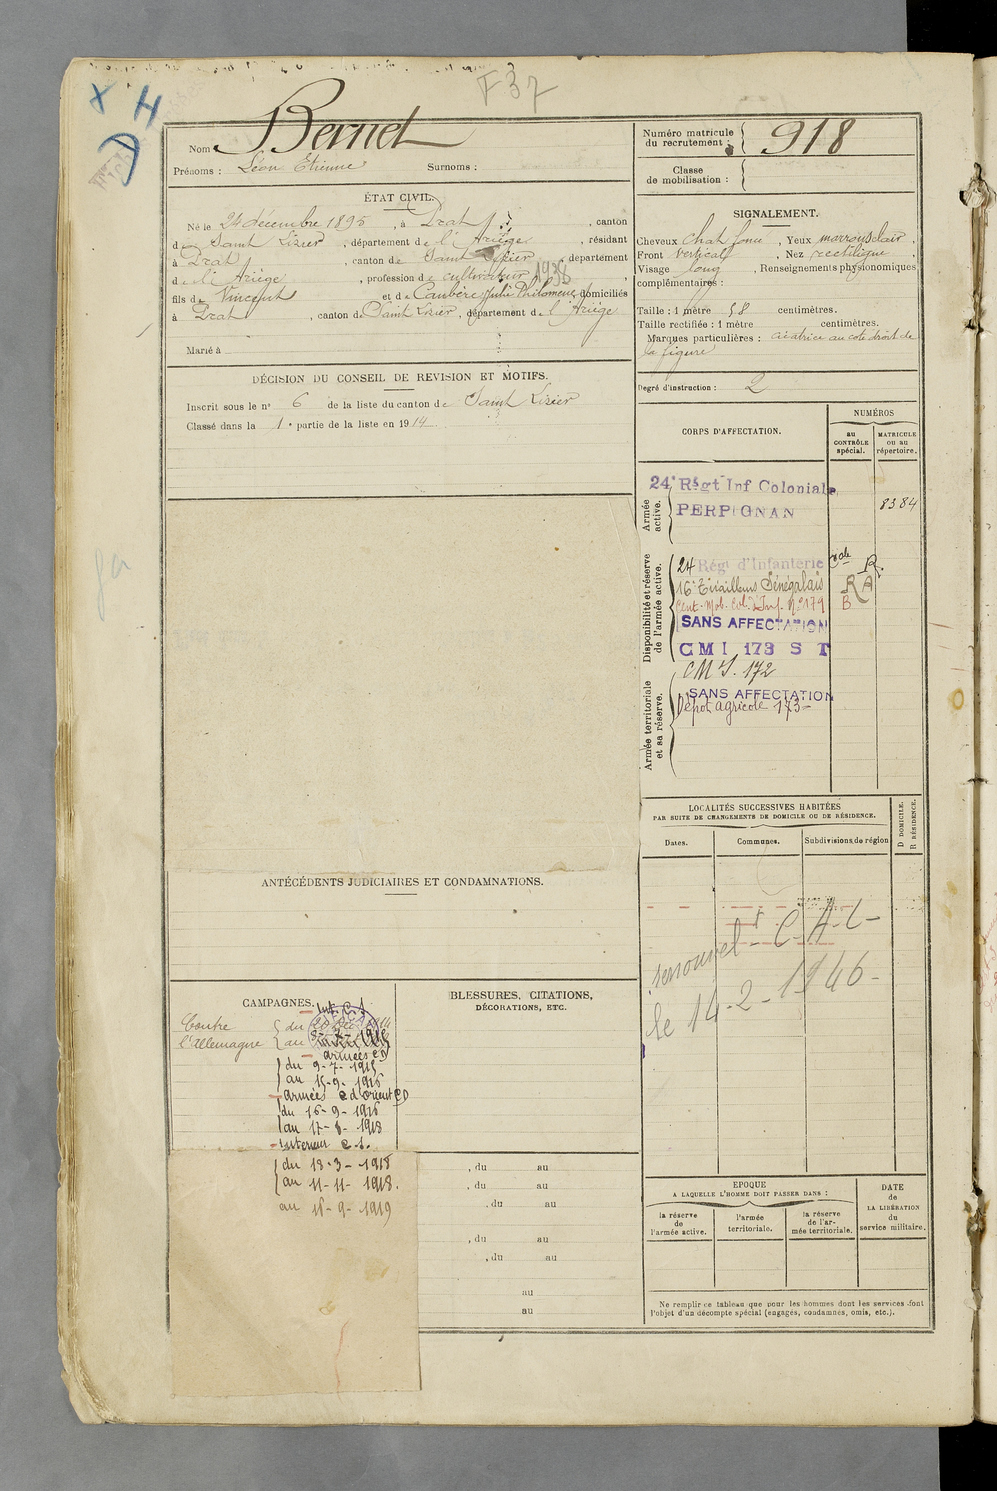 F 37
X H
Nom Bernet
Prénoms : Léon Etienne Surnoms :
ÉTAT CIVIL.
Né le 24 décembre 1895, à Prat, canton
de Saint Lizier, département de l'Ariège, résidant
à Prat, canton de Saint Lizier, département
de l'Ariège, profession de cultivateur
1936
fils de Vincent et de Caubère Julie Philomène domiciliés
à Prat, canton de Saint Lizier, département de l'Ariège
Marié à
DÉCISION DU CONSEIL DE REVISION ET MOTIFS.
Inscrit sous le n° 6 de la liste du canton de Saint Lizier
Classé dans la 1e partie de la liste en 1914
ANTÉCÉDENTS JUDICIAIRES ET CONDAMNATIONS.
CAMPAGNES.
Int. C.S
Contre { du
l'Allemagne { au
armées CD
du 9-7-1915
au 15-9-1916
armées d'Orient CD
du 16-9-1916
au 17-8-1918
Interieur C.S.
du 18-3-1918
au 11-11-1918.
au 11-9-1919
BLESSURES, CITATIONS,
DÉCORATIONS, ETC.
, du au
, du au
, du au
, du au
, du au
au
au
Numéro matricule
du recrutement : 918
Classe
de mobilisation :
SIGNALEMENT.
Cheveux chat. foncé, Yeux marrons clair,
Front vertical, Nez rectiligne,
Visage long, Renseignements physionomiques
complémentaires :
Taille : 1 mètre 58 centimètres.
Taille rectifiée : 1 mètre centimètres.
Marques particulières : cicatrice au coté droit de
la figure
Degré d'instruction : 2
CORPS D'AFFECTATION.
NUMÉROS
au
CONTRÔLE
spécial.
MATRICULE
ou au
répertoire.
Armée
active.
24e Régt Inf Coloniale
PERPIGNAN
8384
Disponibilité et réserve
de l'armée active.
24 Régt d'Infanterie Cale R.
16e Tirailleurs Sénégalais RA
Cent. Mob. Col. d'Inf. N° 179 B
SANS AFFECTATION
CMI 173 S T
Armée territoriale
et sa réserve.
CMI. 172
SANS AFFECTATION
Dépot agricole 173
LOCALITÉS SUCCESSIVES HABITÉES
PAR SUITE DE CHANGEMENTS DE DOMICILE OU DE RÉSIDENCE.
Dates. Communes. Subdivisions de région
D DOMICILE.
R RÉSIDENCE.
renouvelt C A C
le 14-2-1946
EPOQUE
A LAQUELLE L'HOMME DOIT PASSER DANS :
la réserve
de
l'armée active.
l'armée
territoriale.
la réserve
de l'ar-
mée territoriale.
DATE
de
LA LIBÉRATION
du
service militaire.
Ne remplir ce tableau que pour les hommes dont les services font
l'objet d'un décompte spécial (engagés, condamnés, omis, etc.).